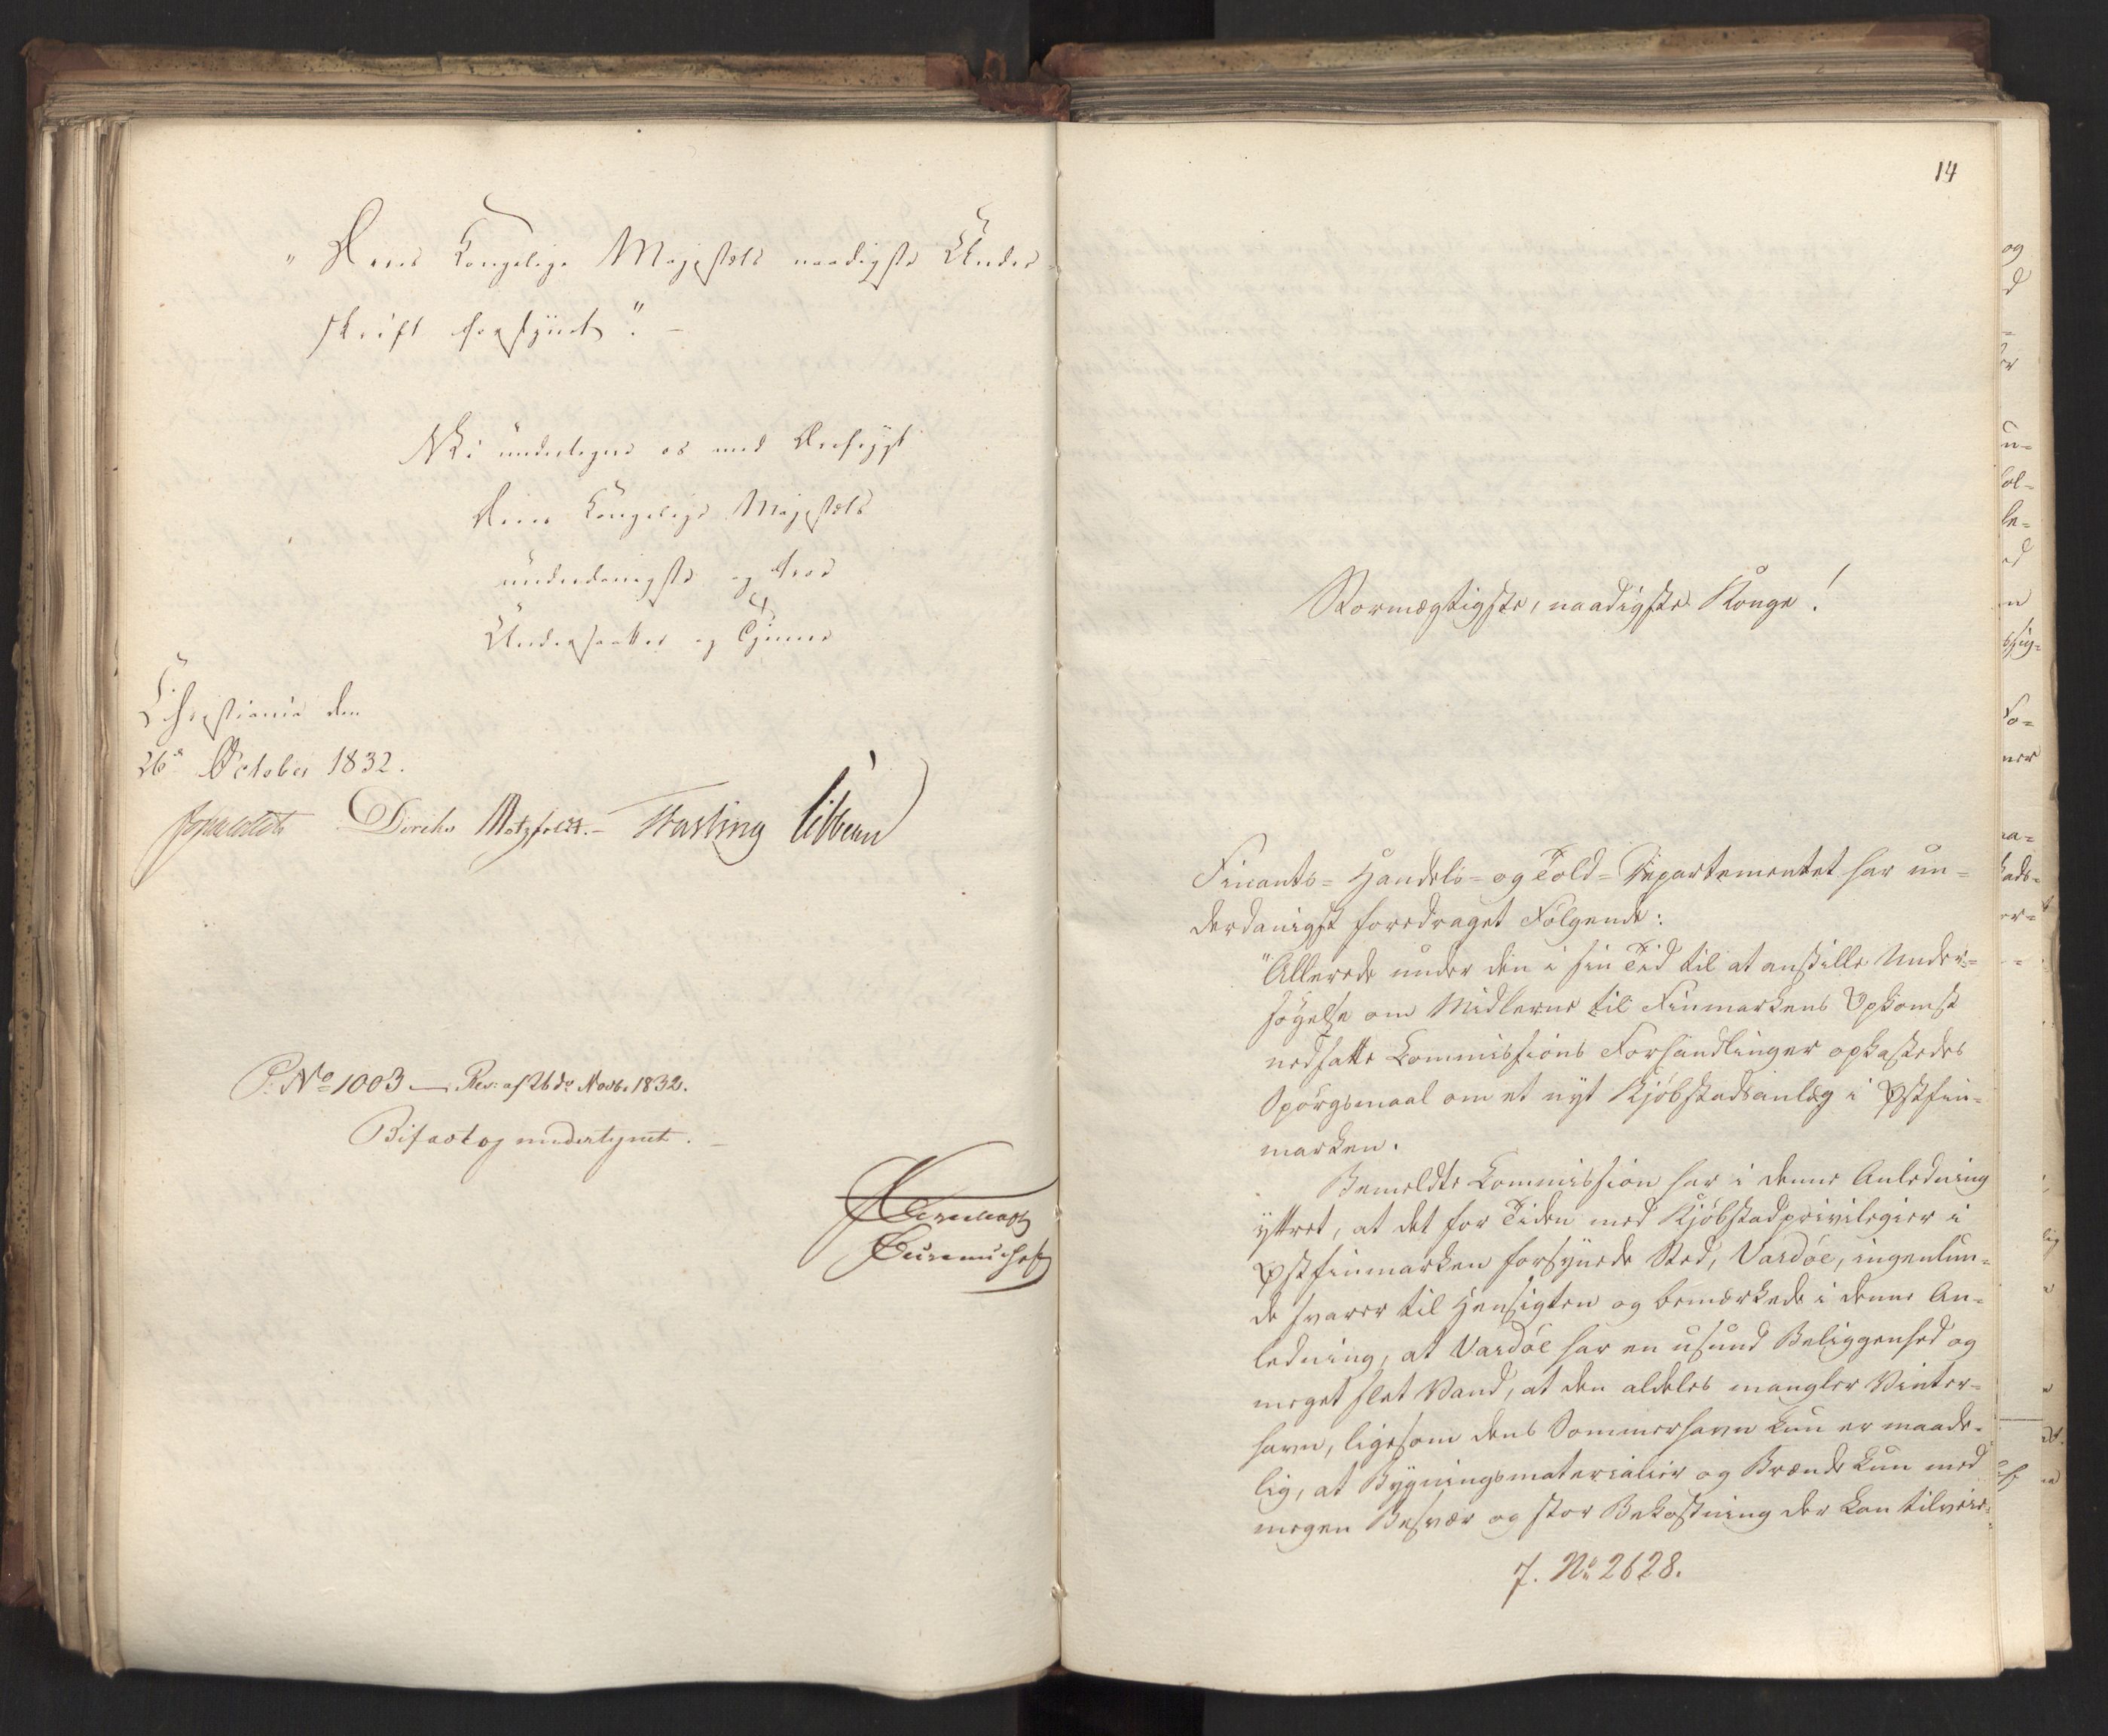 "Deres Kongelige Majestæts naadigste Under-
skrift forsynet". -
Vi undertegne os med Ærefrygt
Deres Kongelige Majestæts
underdanigste og troe
Undersaatter og Tjenere
Christiania den
26de October 1832.
Diriks Motzfeldt. - Fasting Vibe
P: No 1003 - Res: af 26de Novbr 1832.
Bifaldt og undertegnet. -
14
Stormægtigste, naadigste Konge!
Finants- Handels- og Told-Departementet har un-
derdanigst foredraget Følgende:
"Allerede under den i sin Tid til at anstille Under-
søgelse om Midlerne til Finmarkens Opkomst
nedsatte Commissions Forhandlinger opkastedes
Spørgsmaal om et nyt Kjøbstadsanlæg i Østfin-
marken.
Bemeldte Commission har i denne Anledning
yttret, at det for Tiden med Kjøbstadprivilegier i
Østfinmarken forsynede Sted, Vardøe, ingenlun-
de svarer til Hensigten og bemærkede i denne An-
ledning, at Vardøe har en usund Beliggenhed og
meget slet Vand, at den aldeles mangler Vinter-
havn, ligesom dens Sommerhavn kun er maade-
lig, at Bygningsmaterialier og Brænde kun med
megen Besvær og stor Bekostning der kan tilveie-
7. No 2628.